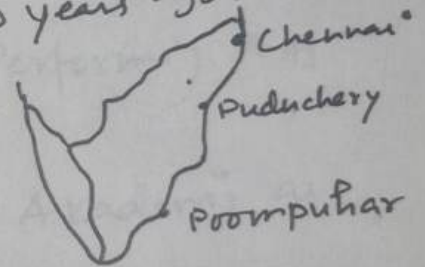 years
Chennai
Puduchery
Poompuhar